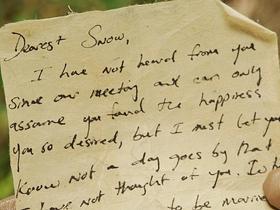 Dearest Snow,
I have not heard from you
since our meeting and can only
assume you found the happiness
you so desired, but I must let you
know not a day goes by that
I have not thought of you.
to be married